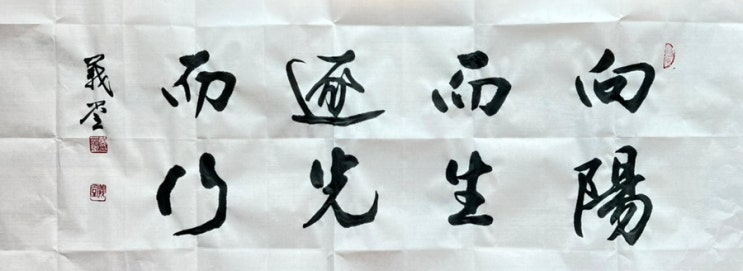 向陽
而生
逐光
而行
義堂